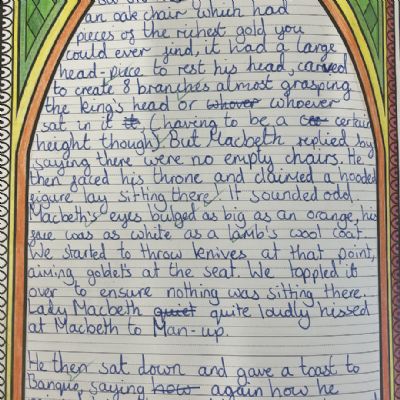 an oak chair which had
pieces of the richest gold you
could ever find, it had a large
head-piece to rest his head, carved
to create 8 branches almost grasping
the king's head or whover whoever
sat in it (having to be a certain
height though) But Macbeth replied by
saying there were no empty chairs. He
then faced his throne and claimed a hooded
figure lay sitting there! It sounded odd,
Macbeth's eyes bulged as big as an orange, his
face was as white as a lamb's wool coat.
We started to throw knives at that point,
aiming goblets at the seat. We toppled it
over to ensure nothing was sitting there.
Lady Macbeth quiet quite loudly hissed
at Macbeth to Man-up.
He then sat down and gave a toast to
Banquo, saying how again how he